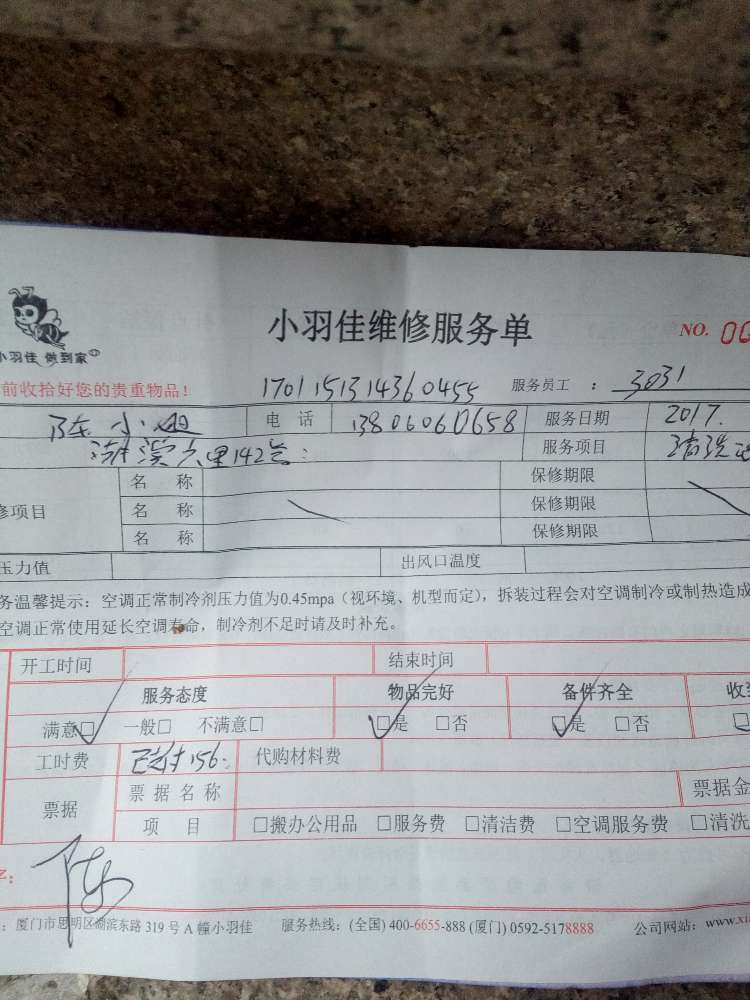 小羽佳维修服务单
NO. 00
小羽佳 做到家
前收拾好您的贵重物品！ 1701151314360455 服务员工 ： 3031
陈小姐 电 话 13806060658 服务日期 2017.
湖滨六里142号： 服务项目 清洗
名 称 保修期限
修项目 名 称 保修期限
名 称 保修期限
压力值 出风口温度
务温馨提示：空调正常制冷剂压力值为0.45mpa（视环境、机型而定），拆装过程会对空调制冷或制热造成
空调正常使用延长空调寿命，制冷剂不足时请及时补充。
开工时间 结束时间
服务态度 物品完好 备件齐全 收
满意□ 一般□ 不满意□ □是 □否 □是 □否
工时费 已付156. 代购材料费
票据 票据名称 票据金
项 目 □搬办公用品 □服务费 □清洁费 □空调服务费 □清洗
字： 陈
：厦门市思明区湖滨东路 319 号 A 幢小羽佳 服务热线：(全国) 400-6655-888 (厦门) 0592-5178888 公司网站：www.xia